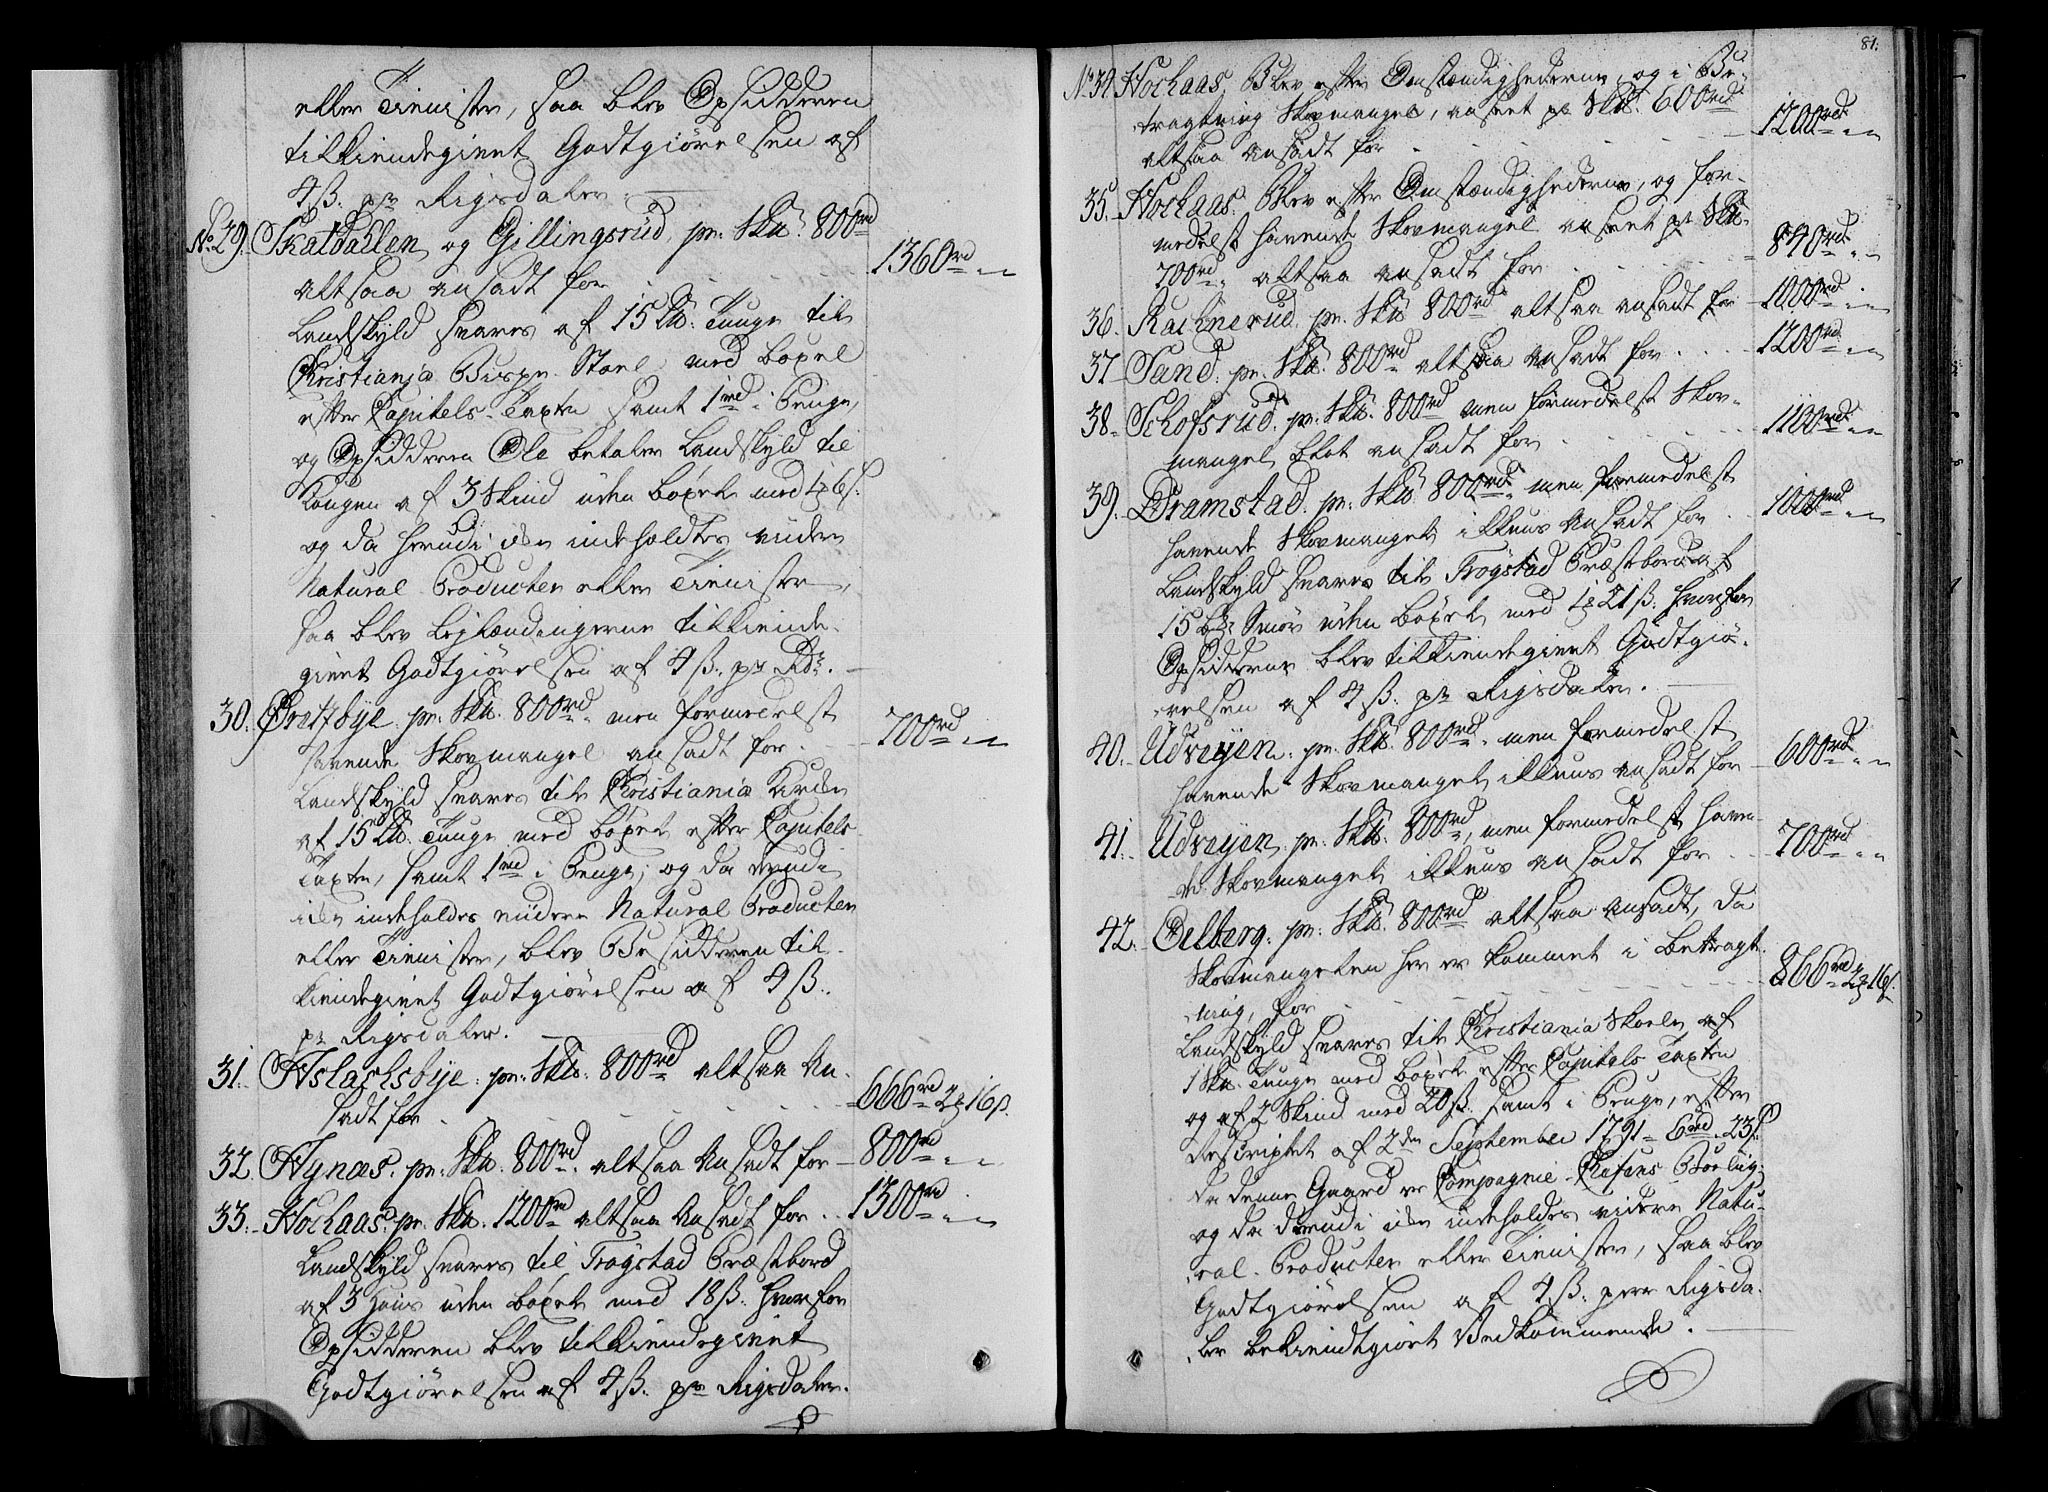 eller Tienister, saa blev Opsidderen
tilkiendegivet Godtgiørelsen af
4 ß. pr Rigsdaler.
No 29. Skatdahlen og Gillingsrud, pr. Skll. 800rd
altsaa ansadt for 1360rd " "
Landskyld svares af 15 Tunge til
Christiania Bispe Stoel med bøxel
efter Capitels-Taxten samt 1rd i Penge,
og Opsidderen Ole betaler Landskyld til
Kongen af 3 Skind uden bøxel med 1 6 ß.
og da herudi ei indeholdtes videre
Natural Producter eller Tienister,
saa blev Lejlændingerne tilkiende-
givet Godtgiørelsen af 4 ß. pr Rdr.
30. Prettbye. pr. Skll. 800rd " men formedelst
havende Skovmangel ansadt for 700rd " "
Landskyld svares til Christiania Kirke
af 15 Tunge med bøxel efter Capitels
Taxten, samt 1rd i Penge; og da derudi
ei indeholdes videre Natural Producter
eller Tienister, blev Besidderen til-
kiendegivet Godtgiørelsen af 4 ß.
pr Rigsdaler.
31. Aslachsbye. pr. Skll. 800rd altsaa An-
sadt for 666rd 2 16 ß.
32. Hynæs. pr. Skll. 800rd. altsaa Ansadt for 800rd " "
33. Hochaas. pr. Skll. 1200rd altsaa Ansadt for 1300rd " "
Landskyld svares til Trøgstad Præstbord
af 3 uden bøxel med 18 ß. hvorfor
Opsidderen blev tilkiendegivet
Godtgiørelsen af 4 ß. pr Rigsdaler.
81.
No 34. Hochaas. Blev efter Omstændighederne, og i Be-
tragtning Skovmangel, anseet pr Skll. 600rd
altsaa ansadt for 1200rd " "
35. Hochaas. Blev efter Omstændighederne, og for-
medelst havende Skovmangel anseet pr Skll.
700rd " altsaa ansadt for 840rd " "
36. Rachnerud. pr. Skll. 800rd altsaa ansadt for 1000rd " "
37. Sand. pr. Skll. 800rd altsaa ansadt for 1200rd " "
38. Schofsrud. pr. Skll. 800rd men formedelst Skov-
mangel blot ansadt for 1100rd " "
39. Dramstad. pr. Skll. 800rd " men formedelst
havende Skovmangel ikkuns Ansadt for 1000rd " "
Landskyld svares til Trøgstad Præstbord af
15 Smør uden bøxel med 1 21 ß. hvorfor
Opsidderne blev tilkiendegivet Godtgiø-
relsen af 4 ß. pr Rigsdaler.
40. Udvejen. pr. Skll. 800rd " men formedelst
havende Skovmangel ikkuns ansadt for 600rd " "
41. Udvejen. pr. Skll. 800rd, men formedelst haven-
de Skovmangel ikkuns ansadt for 700rd " "
42. Oelberg. pr. Skll. 800rd altsaa Ansadt, da
Skovmangelen her er kommet i Betragt-
ning, for 866rd 2 16 ß.
Landskyld svares til Christiania Skole af
1 Tunge med bøxel efter Capitels Taxten
og af 2 Skind med 20 ß. samt i Penge, efter
Rescriptet af 2den September 1791 - 6rd " 23 ß.
da denne Gaard er Compagnie-Chefens Boelig;
og da derudi ei indeholdes videre Natu-
ral-Producter eller Tienister, saa blev
Godtgiørelsen af 4 ß. perr Rigsda-
ler bekiendtgiort Vedkommende.